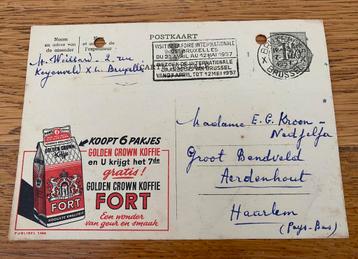 POSTKAART
Naam en
adres van
de afzender
CARTE
VISITEZ LA FOIRE INTERNATIONALE
DE BRUXELLES
DU 27 AVRIL AU 12 MAI 1957
BEZOEKT DE INTERNATIONALE
VAN BRUSSEL
VAN 27 APRIL TOT 12 MEI 1957
BRUSSEL
M. Weittard - 2, rue
Keyenveld XL. Bruxelles
Madame E. G. Kroon-
Groot Bendveld
Aerdenhout
Haarlem
(Pays-Bas)
KOOPT 6 PAKJES
GOLDEN CROWN KOFFIE
en U krijgt het 7de
gratis!
GOLDEN CROWN KOFFIE
FORT
Een wonder
van geur en smaak
6
FORT
PUBLIBEL 1446